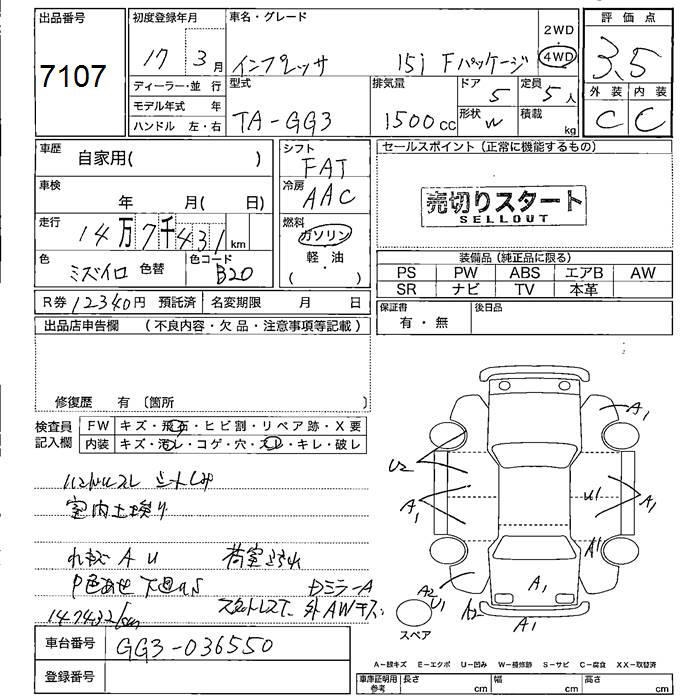 出品番号
7107
初度登録年月
17 3月
車名・グレード
インプレッサ 15i Fパッケージ
2WD
4WD
評価点
3.5
ディーラー・並 行
モデル年式 年
ハンドル 左・右
型式
TA-GG3
排気量
1500cc
ドア
5
定員
5人
形状
W
積載
kg
外装 内装
C C
車歴
自家用( )
シフト
FAT
セールスポイント(正常に機能するもの)
車検
年 月( 日)
冷房
AAC
売切りスタート
SELLOUT
走行
14万7千431km
燃料
ガソリン
軽・油
( )
色
ミズイロ 色替
色コード
B20
装備品(純正品に限る)
PS PW ABS エアB AW
SR ナビ TV 本革
R券12340円 預託済
名変期限 月 日
保証書
有・無
後日品
出品店申告欄 (不良内容・欠品・注意事項等記載)
修復歴 有 〔箇所 〕
検査員
記入欄
FW キズ・飛石・ヒビ割・リペア跡・X要
内装 キズ・汚レ・コゲ・穴・スレ・キレ・破レ
ハンドルスレ シートしみ
室内
キズ A U 荷室
色あせ
ミラーA
147432km
外AWキズ
A1
U2
A1
U1
A1
A1
A2
U1
A1
A2
A1
スペア
車台番号
GG3-036550
登録番号
A-線キズ E-エクボ U-凹み W-補修跡 S-サビ C-腐食 XX-取替済
車庫証明用
参考
長さ cm 幅 cm 高さ cm